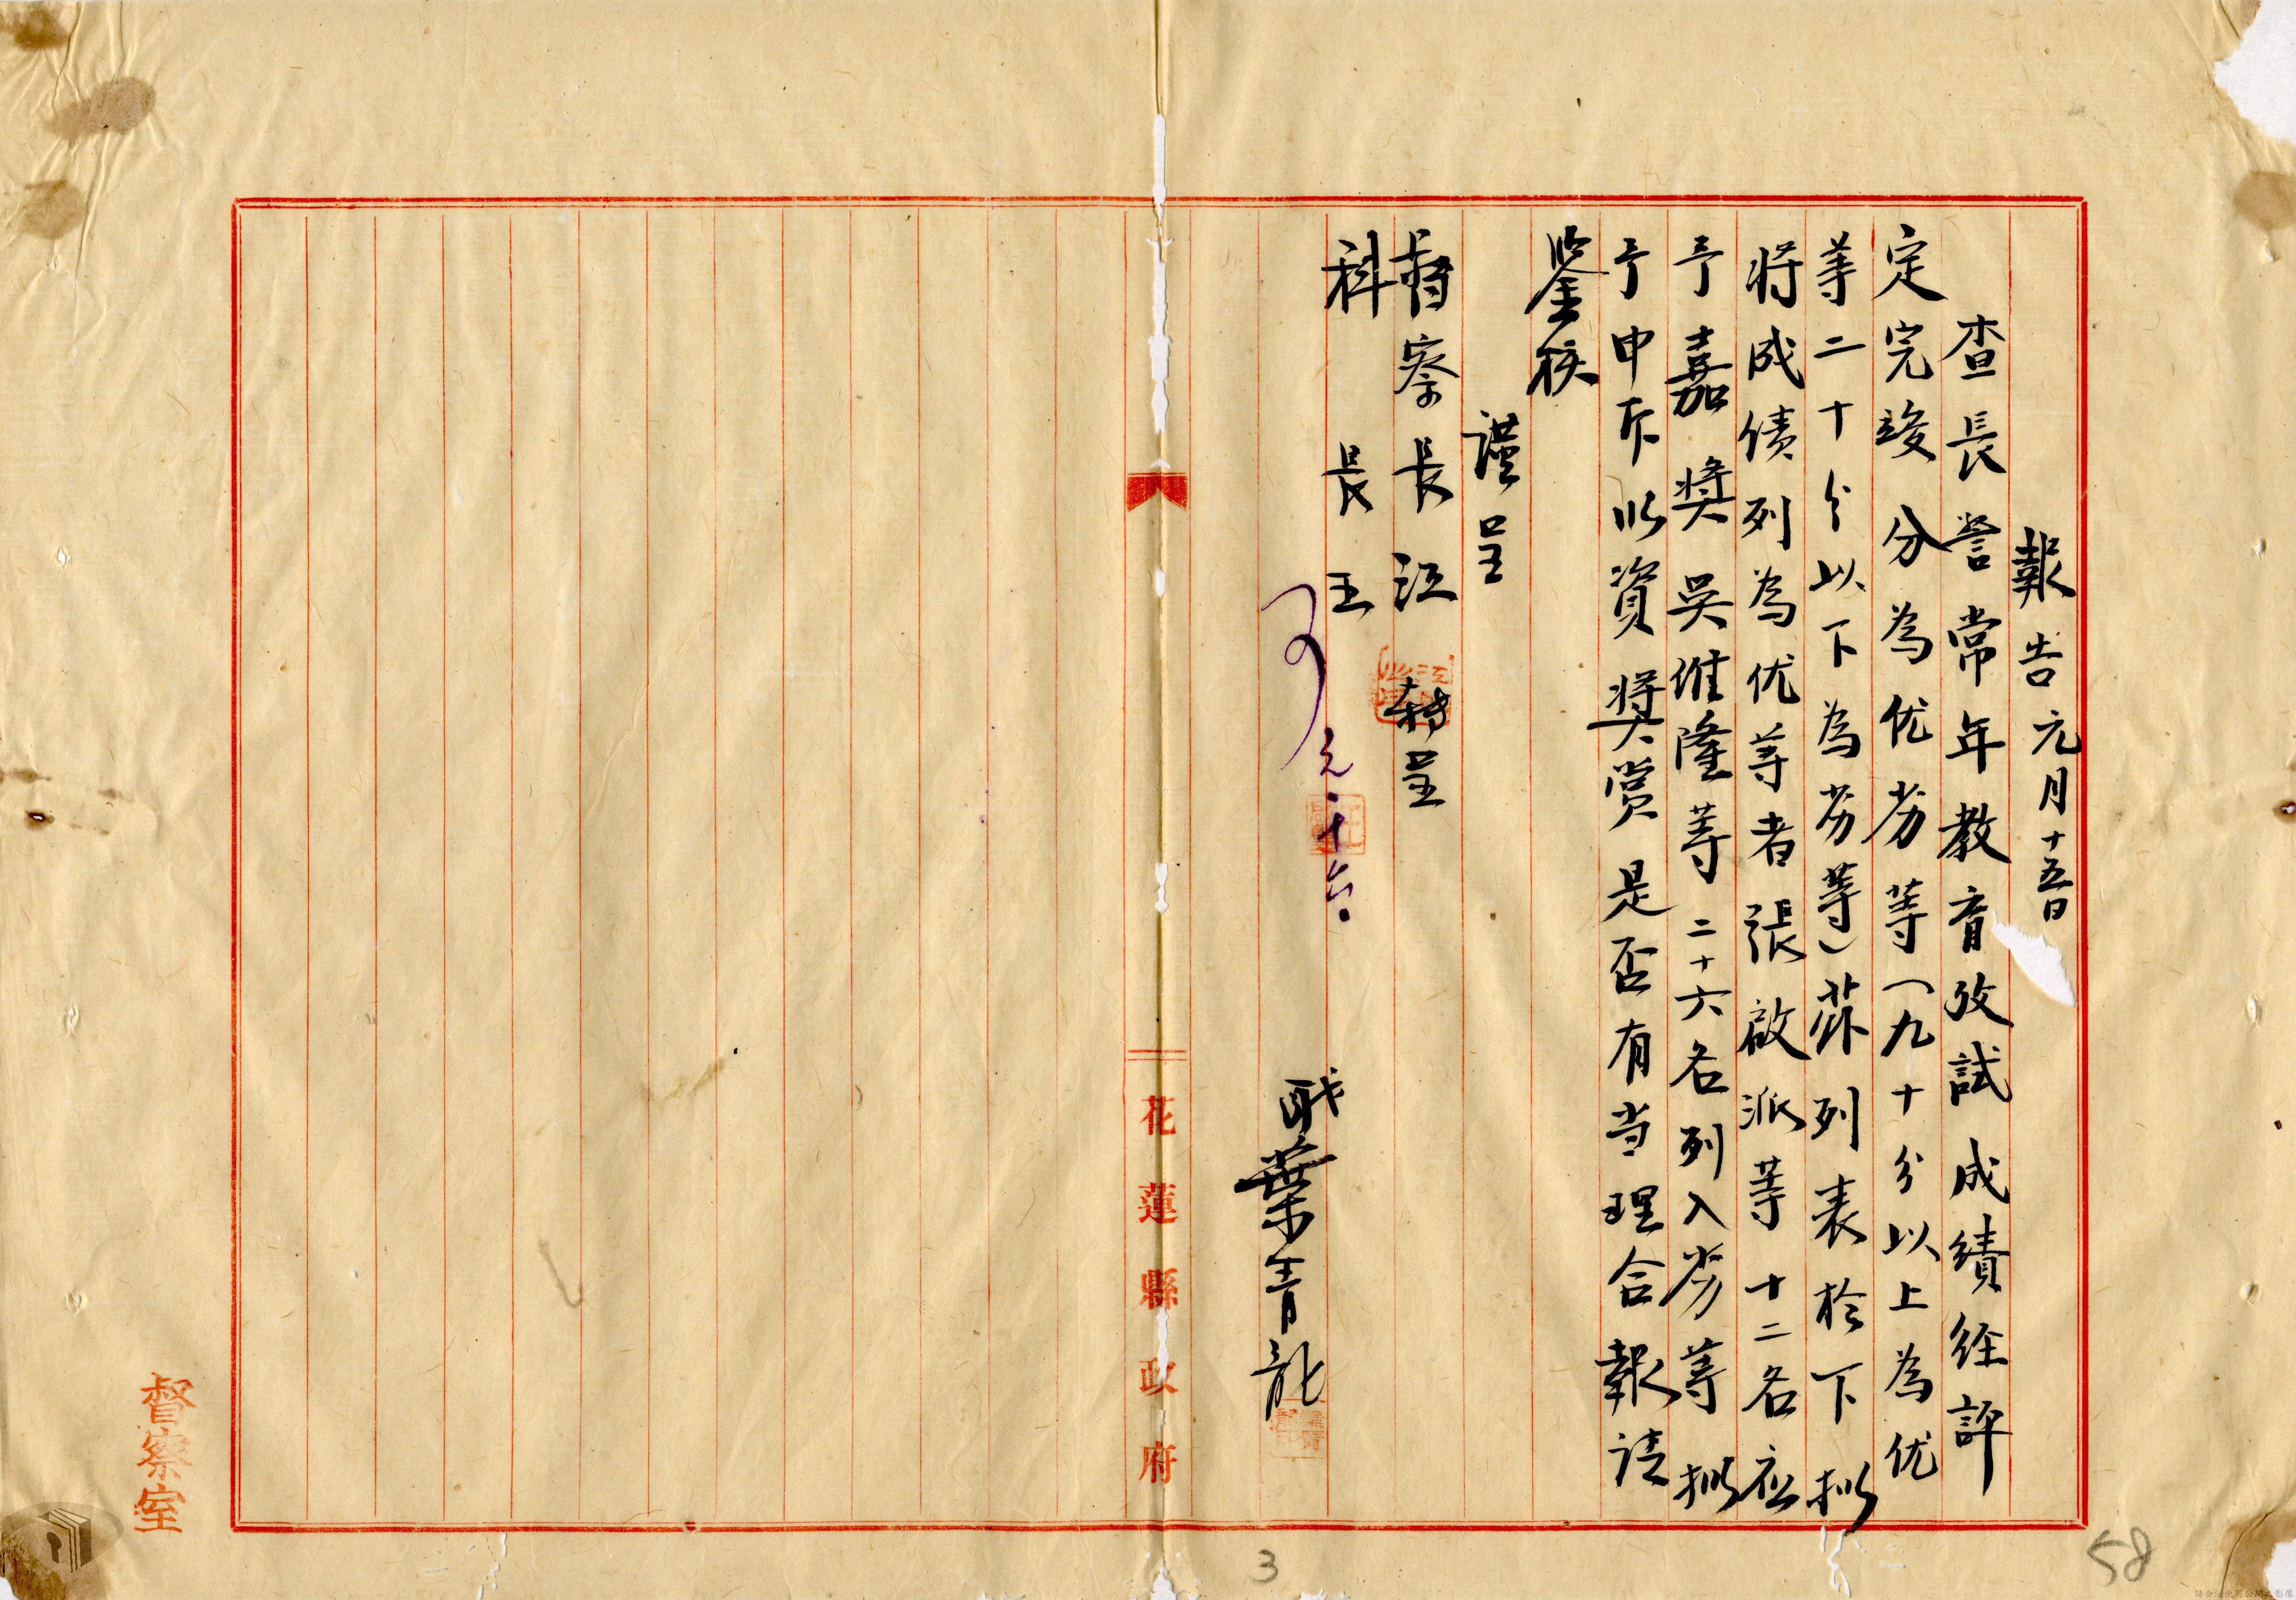 報告 元月十五日
查長警常年教育攷試成績經評
定完竣分為优劣等(九十分以上為优
等二十分以下為劣等)茲列表於下拟
将成绩列為优等者張啟派等十二名应
予嘉獎吳維隆等二十六名列入劣等拟
予申斥以資獎赏是否有当理合報请
鉴核
謹呈
督察長江 轉呈
科長王
元.十六.
職葉青龍
花蓮縣政府
督察室
3
58